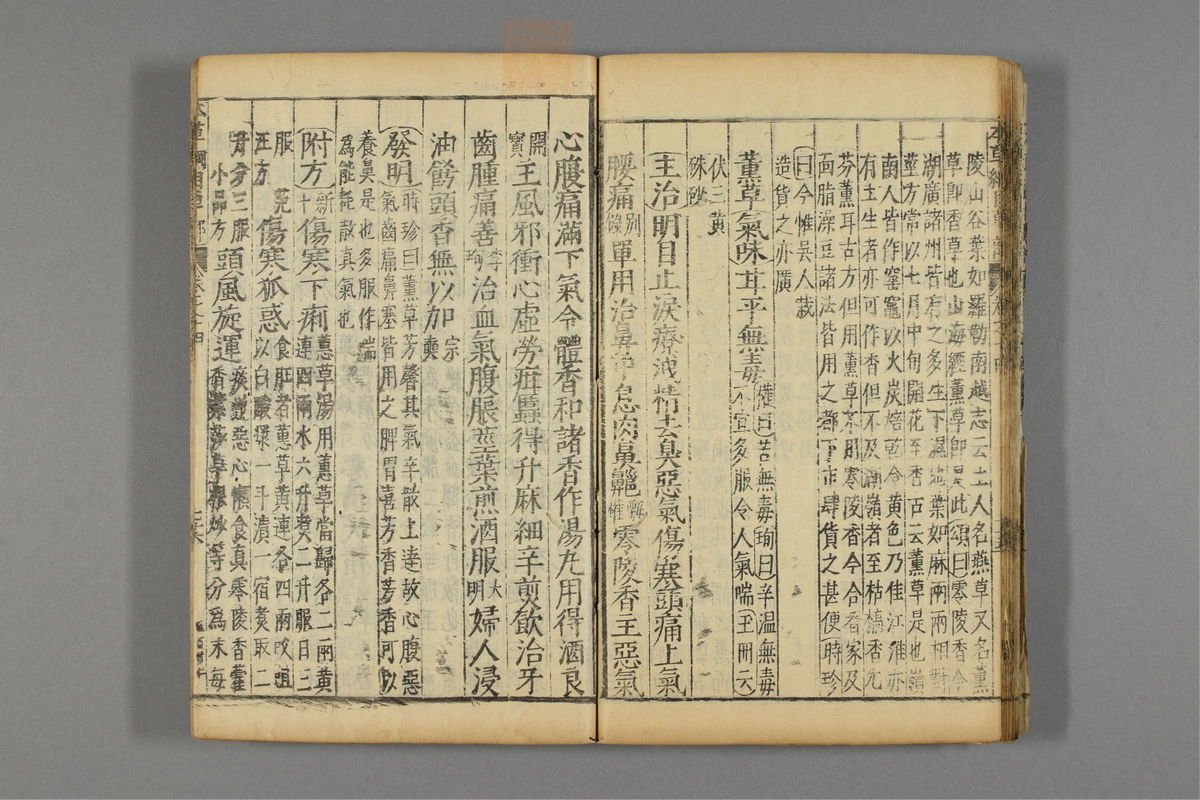 陵山谷葉如羅勒南越志云土人名燕草又名薰
草卽香草也山海經薰草卽是此頌曰零陵香今
湖廣諸州皆有之多生下濕地葉如麻兩兩相對
莖方常以七月中旬開花至香古云薰草是也嶺
南人皆作窑竈以火炭焙乾令黃色乃佳江淮亦
有土生者亦可作香但不及湖嶺者至枯槁香尤
芬薰耳古方但用薰草不用零陵香今合香家及
面脂澡豆諸法皆用之都下市肆貨之甚便時珍
曰今惟吳人栽
造貨之亦廣
薰草氣味甘平無毒權曰苦無毒珣曰辛温無毒
不宜多服令人氣喘玉冊云
伏三黃
硃砂
主治明目止淚療洩精去臭惡氣傷寒頭痛上氣
腰痛別錄單用治鼻中息肉鼻齆甄權零陵香主惡氣
心腹痛滿下氣令體香和諸香作湯丸用得酒良
開寶主風邪衝心虛勞疳䘌得升麻細辛煎飲治牙
齒腫痛善李珣治血氣腹脹莖葉煎酒服大明婦人浸
油飾頭香無以加宗奭
發明時珍曰薰草芳馨其氣辛散上達故心腹惡
氣齒痛鼻塞皆用之脾胃喜芳香芳香可以
養鼻是也多服作喘
爲能耗散真氣也
附方新十傷寒下痢蕙草湯用蕙草當歸各二兩黃
連四兩水六升煑二升服日三
服
范
汪方傷寒狐惑食肛者蕙草黃連各四兩㕮咀
以白酸漿一斗漬一宿煑取二
升分三服
小品方頭風旋運痰逆惡心懶食真零陵香藿
香莎草根炒等分爲末每